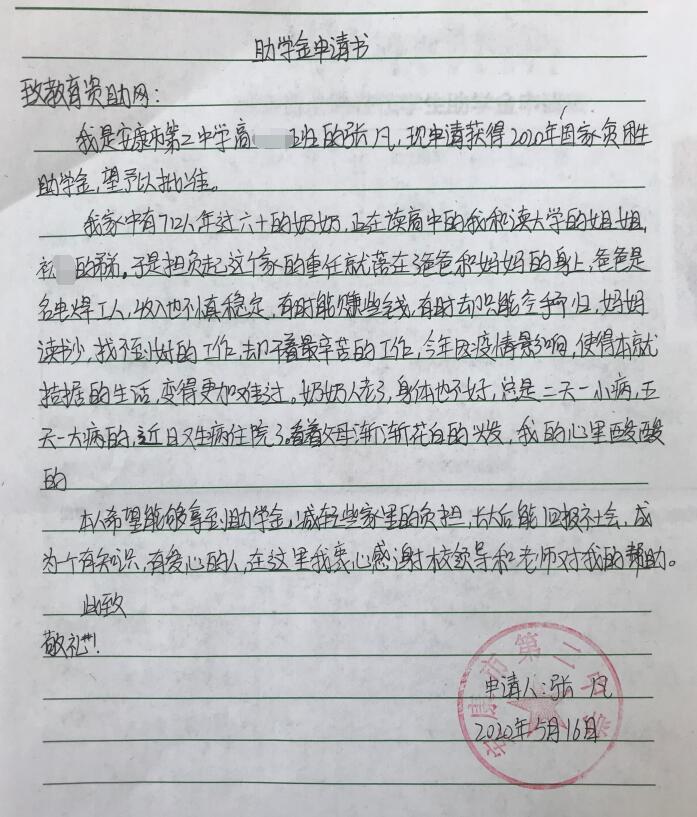 助学金申请书
致教育资助网：
我是安康市第二中学高班的张凡，现申请获得2020年国家贫困生
助学金，望予以批准。
我家中有7口人年过六十的奶奶，正在读高中的我和读大学的姐姐，
的弟弟。于是担负起这个家的重任就落在爸爸和妈妈的身上，爸爸是
名电焊工人，收入也不真稳定，有时能赚些钱，有时却只能空手而归，妈妈
读书少，找不到好的工作，却干着最辛苦的工作，今年因疫情影响，使得本就
拮据的生活，变得更加难过。奶奶人老了，身体也不好，总是三天一小病，五
天一大病的，近日又生病住院了。看着父母渐渐花白的头发，我的心里酸酸
的
本人希望能够拿到助学金，减轻些家里的负担，长大后能回报社会，成
为个有知识，有爱心的人，在这里我衷心感谢校领导和老师对我的帮助。
此致
敬礼！
申请人：张凡
2020年5月16日
安康市第二中学